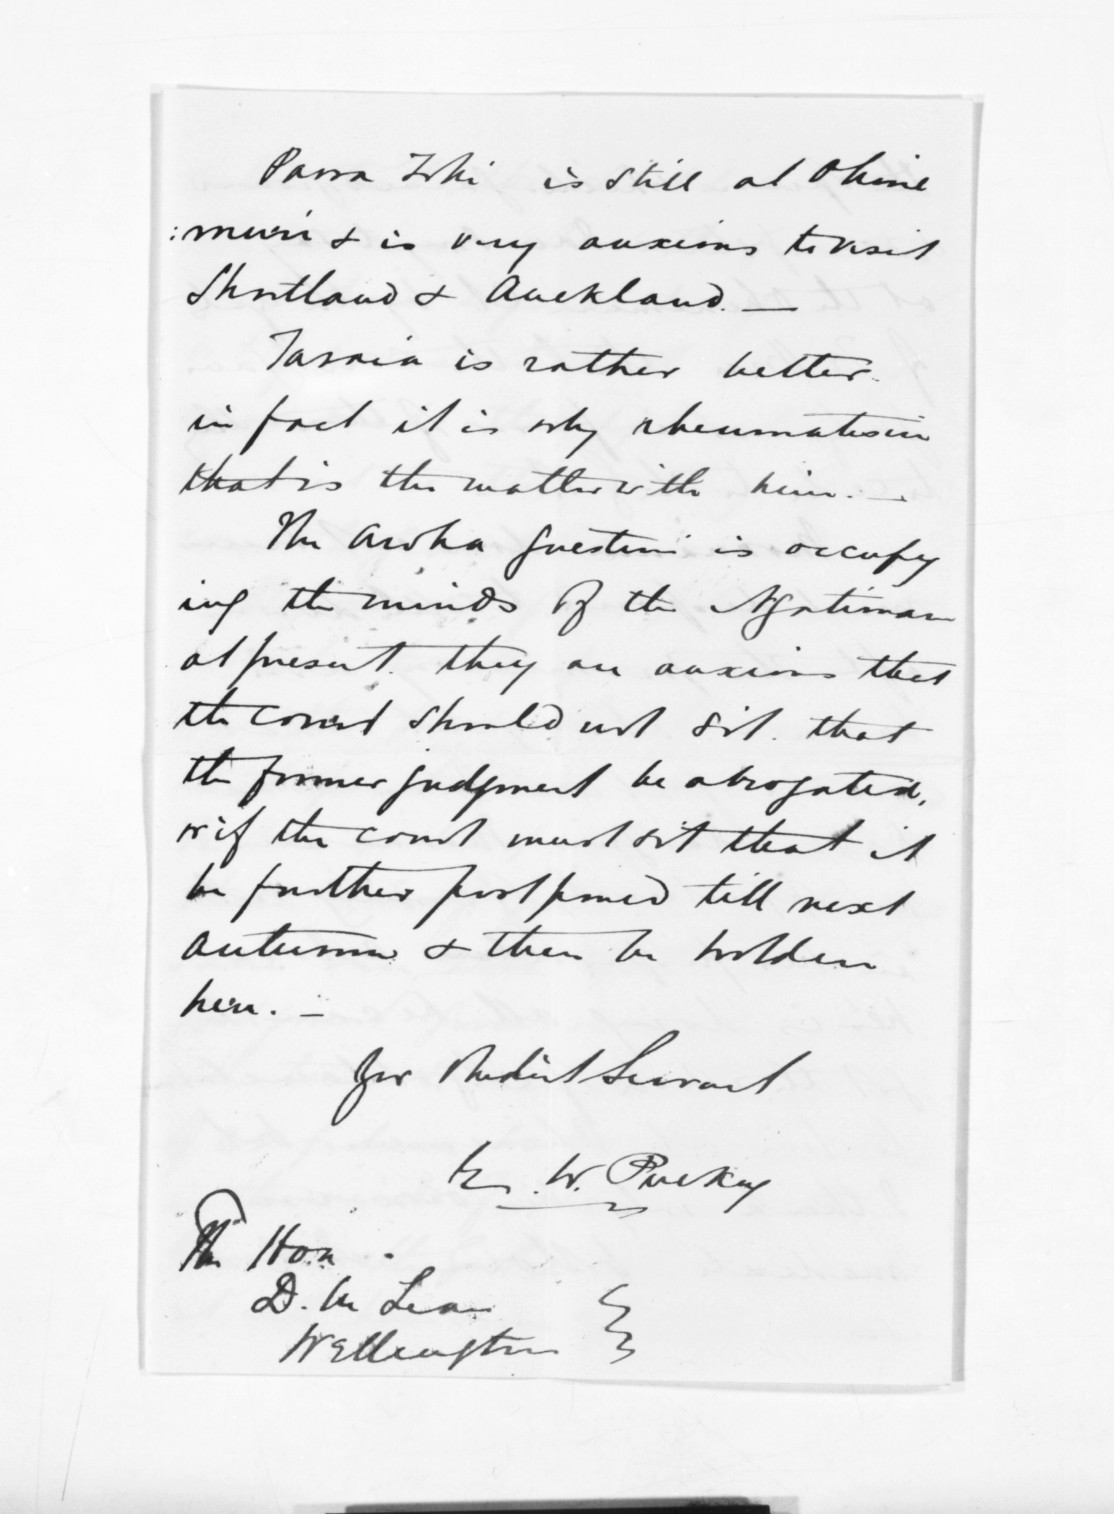 Parra Toki is still at Ohine
:muri & is very anxious to visit
Shortland & Auckland. —
Taraia is rather better.
in fact it is only rheumatism
that is the matter with him. —
The Aroha question is occupy
ing the minds of the Ngatimaru
at present. they are anxious that
the court should not sit. that
the former judgment be abrogated,
or if the court must sit that it
be further postponed till next
autumn & then be holden
here. —
Your Obedient Servant
E. W. Puckey
The Hon.
D. McLean
Wellington